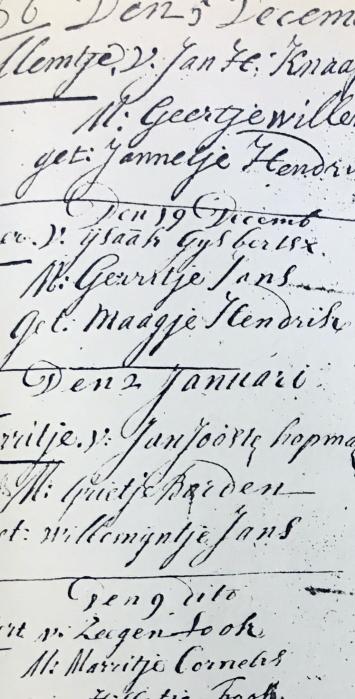 56 Den 5 Decem
llemtje, V: Jan H: Knaa
M: Geertje wille
get: Jannetje Hendri
Den 19 Decemb
V: ijsaak Gysbertsz.
M: Gerritje Jans
get: Maagje Hendrik
Den 2 Januari
rritje. v: Jan Jooste hopma
M: Grietje Barden
et: willemyntje Jans
Den 9 dito
rt v: Zeegen Look
M: Marritje Cornelis